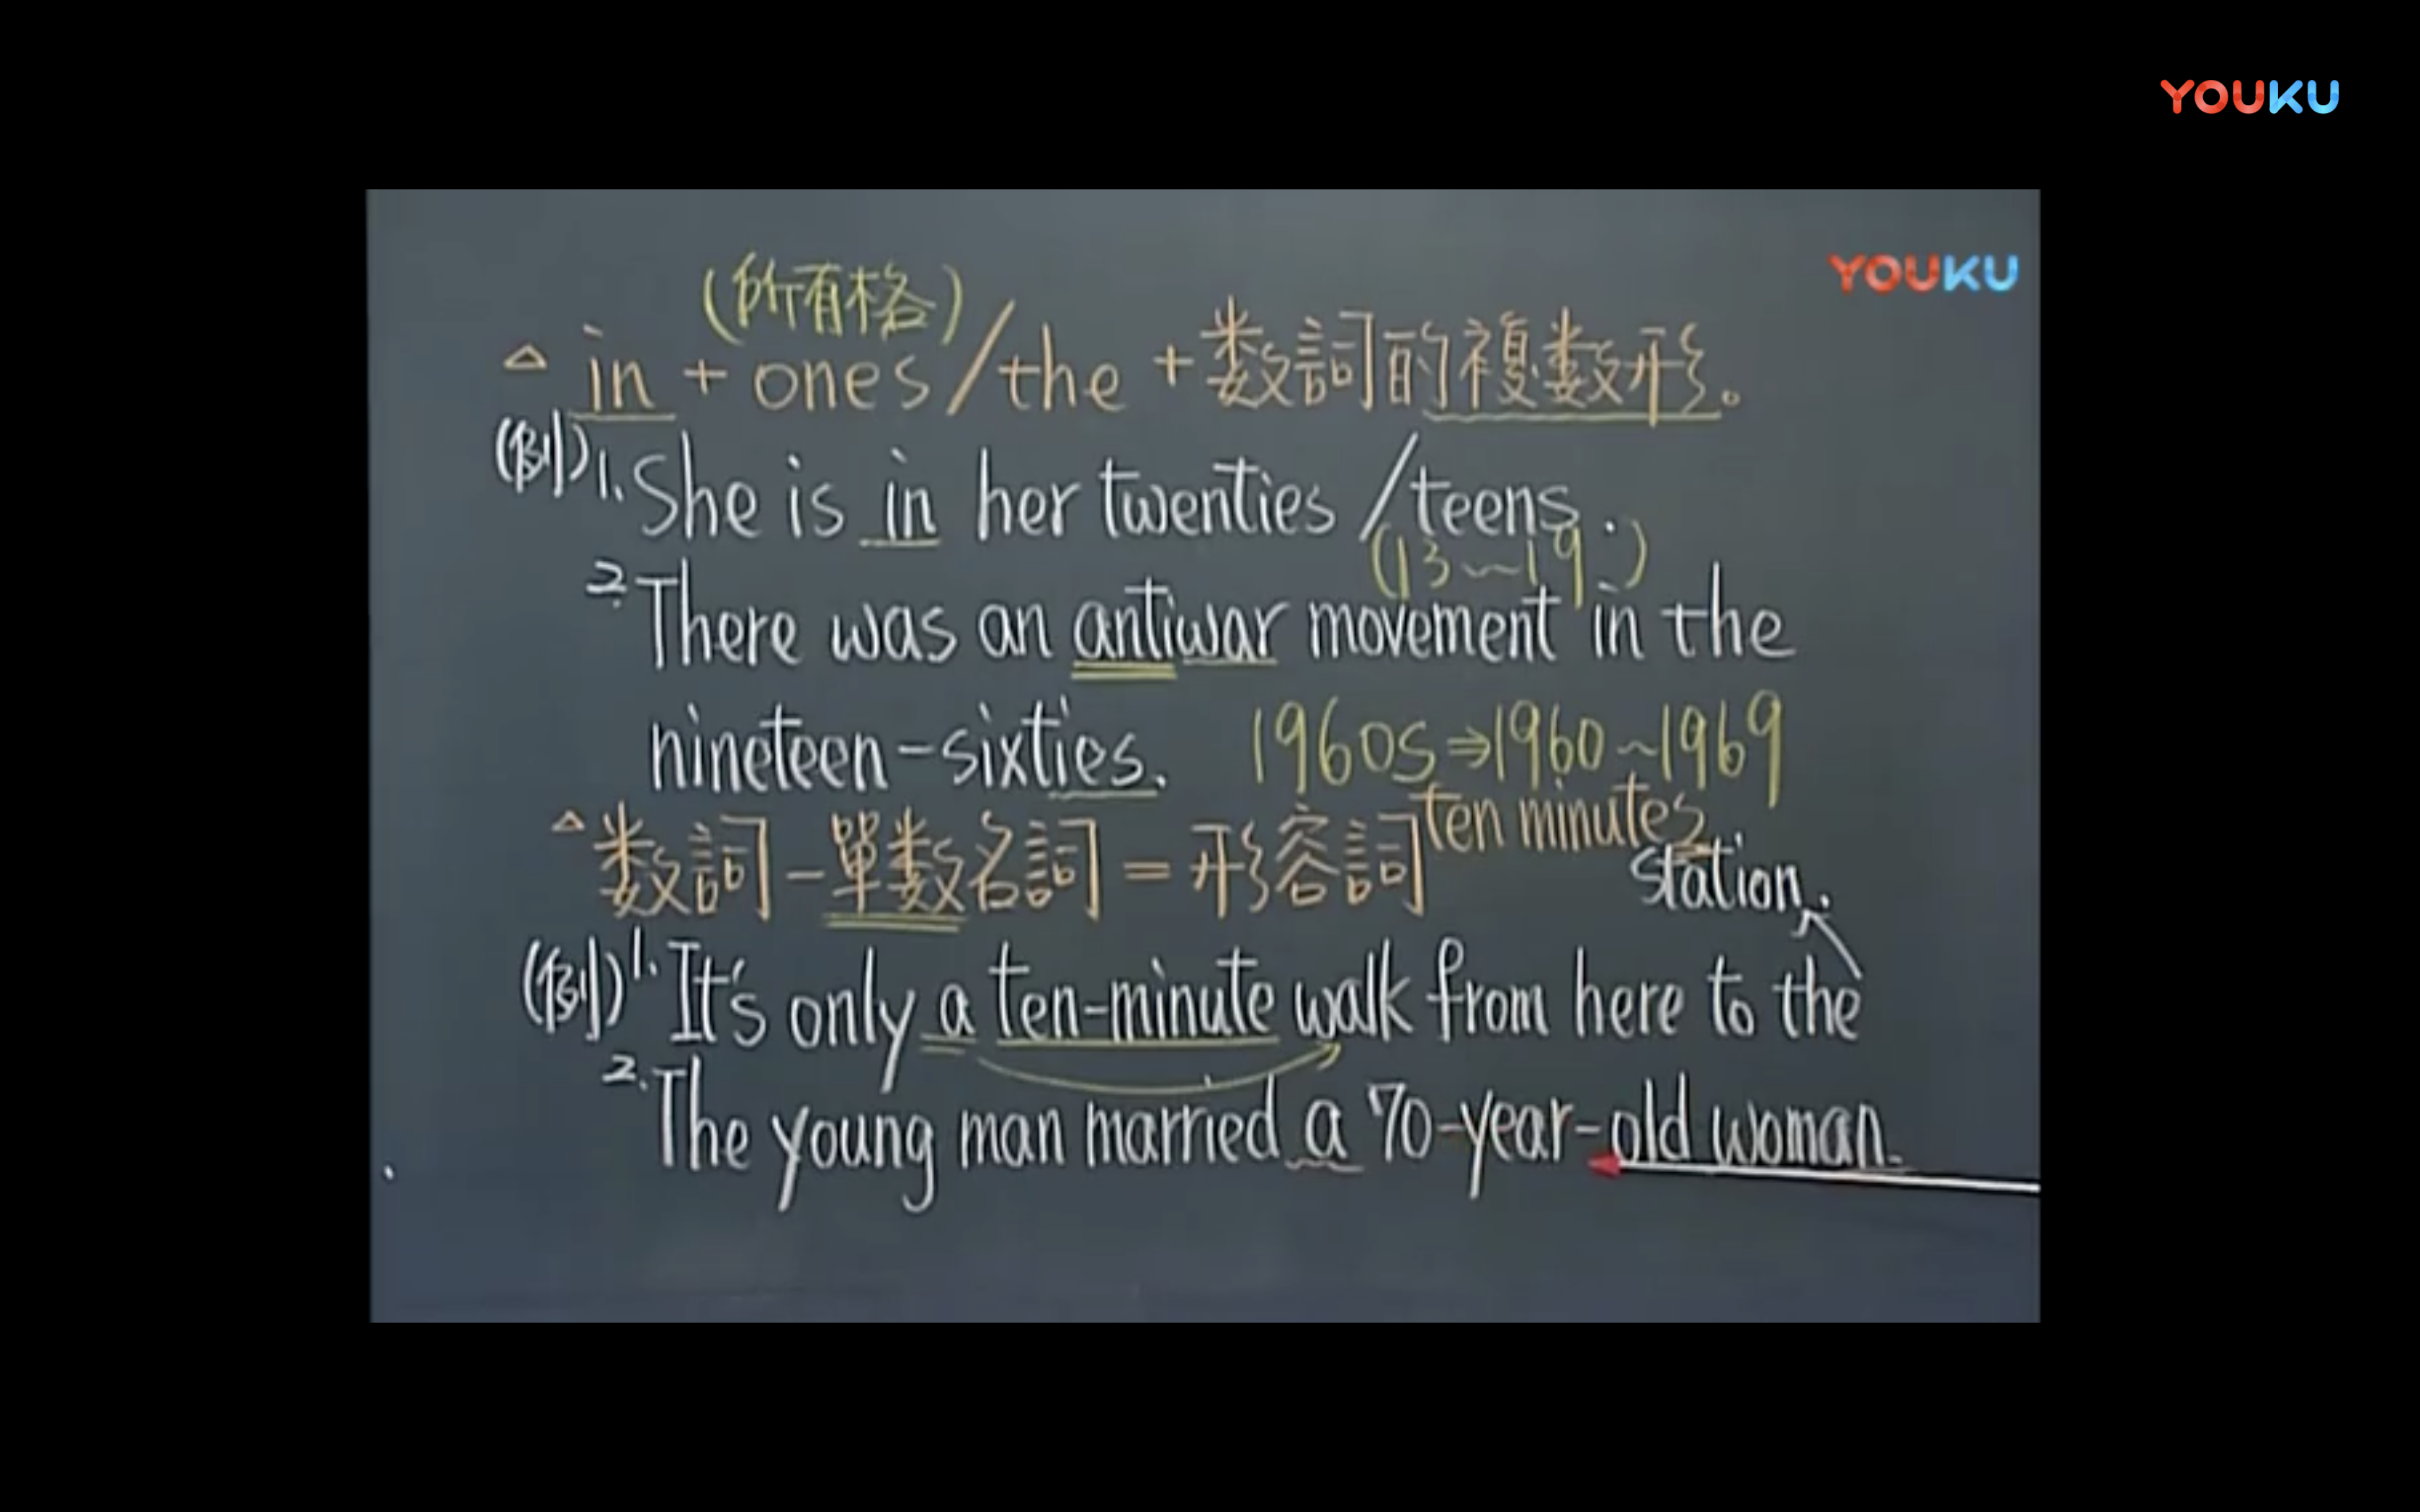 YOUKU
YOUKU
(所有格)
△ in + ones/the + 数詞的複数形。
(例) 1. She is in her twenties /teens.
(13~19.)
2. There was an antiwar movement in the
nineteen-sixties. 1960s⇒1960~1969
ten minutes
△数詞-單数名詞=形容詞
station.
(例) 1. It's only a ten-minute walk from here to the
2. The young man married a 70-year-old woman.